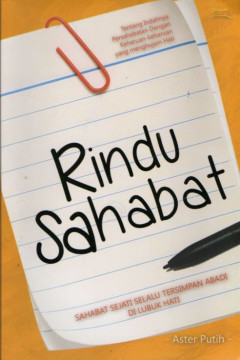 Tentang Indahnya
Persahabatan Dengan
Keharuan-keharuan
yang menghujam Hati
Rindu
Sahabat
SAHABAT SEJATI SELALU TERSIMPAN ABADI
DI LUBUK HATI
Aster Putih